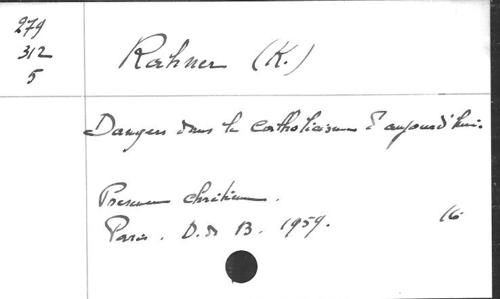 279
312
5
Rahner (K.)
Dangers dans le catholicisme d'aujourd'hui.
Présence chrétienne.
Paris. D. de B. 1959. 16